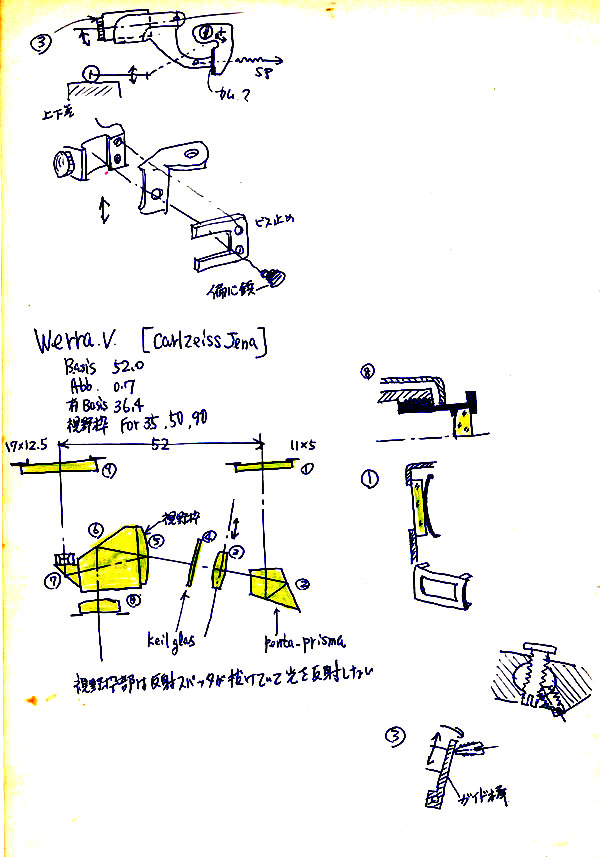 ③
SP
カム?
上下差
ビス止め
偏心鋲
Werra.V. [Carlzeiss Jena]
Basis 52.0
Abb. 0.7
有Basis 36.4
視野枠 For 35, 50, 90
17×12.5
52
11×5
⑨
①
視野枠
⑥
⑤
④
③
②
⑦
⑧
keil glas
penta-prisma
視野枠部は反射スパッタが抜けていて光を反射しない
⑧
①
③
ガイド棒